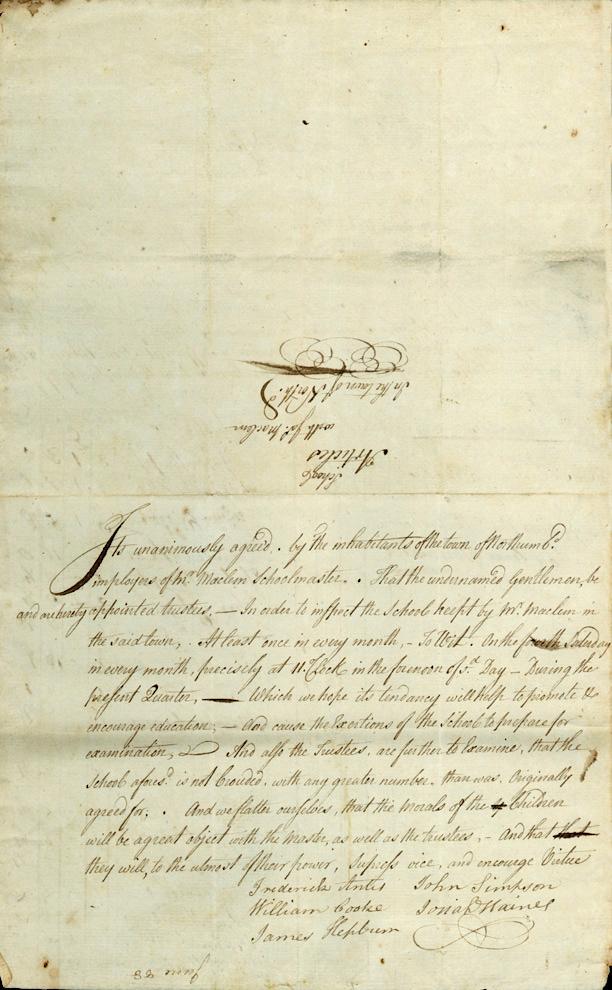 School
Articles
with Jas. Maclem
In the town of North.d
Its unanimously agreed, . by the inhabitants of the town of Northumb.d
imployers of Mr. Maclem Schoolmaster. . That the undernamed Gentlemen, be
and are hereby appointed trustees, — In order to inspect the School keept by Mr. Maclem in
the said town, . At least once in every month, - To Wit. On the fourth Saturday
in every month, precisely at 11 Clock in the forenoon of s.d Day — During the
present Quarter, — Which we hope its tendancy will help to promote &
encourage education; — And cause the Exertions of the School to prepare for
examination, And also the Trustees, are further to Examine, that the
School afores.d is not Crouded, with any greater number, than was, Originally
agreed for; . And we flatter ourselves, that the Morals of the Children
will be a great object with the Master, as well as the trustees, - And that that
they will, to the utmost of their power, Supress vice, and encourage Virtue
Frederick Antis John Simpson
William Cooke Josiah Haines
James Hepburn
88